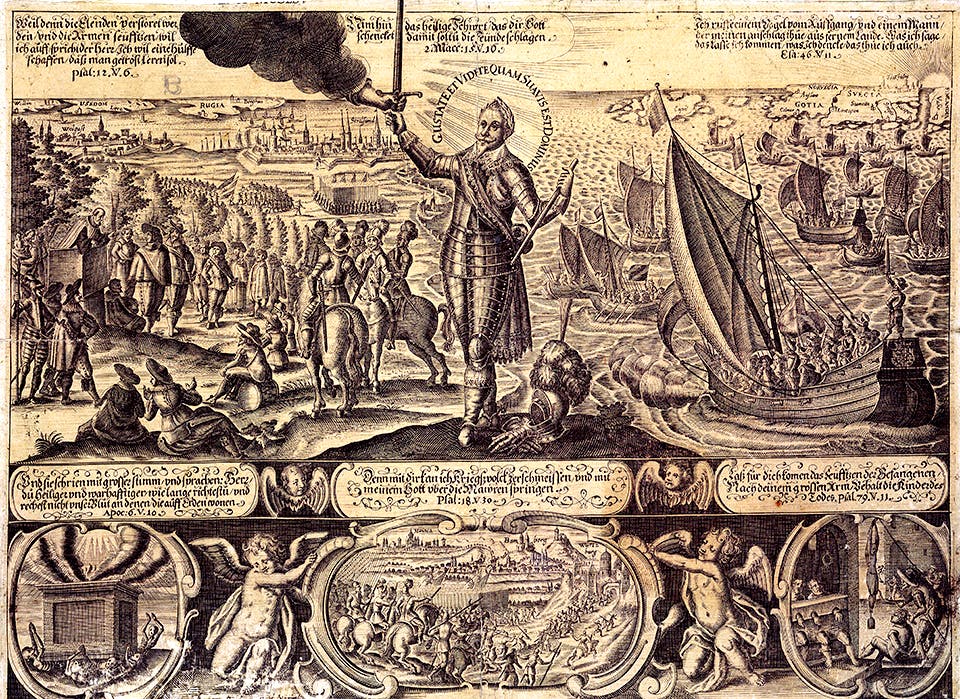 Weil denn die Elenden verstöret wer
den, und die Armen seufftzen, wil
ich auff, spricht der herr, Ich wil eine hülffe
schaffen, daß man getrost leren sol.
psal: 12. V. 6.
Nim hin das heilige Schwert, das dir Gott
schencket damit soltu die feinde schlagen
2. Macc: 15 V. 16.
Ich ruffe einem Vogel vom Auffgang, und einem Mann,
der meinen anschlag thue, aus fernem Lande. Was ich sage,
das lasse ich kommen, was ich dencke, das thue ich auch.
Esa: 46. V. 11.
GUSTATE ET VIDETE QUAM SUAVIS EST DOMINUS
USEDOM
RUGIA
Wolgast
NORVEGIA
SVECIA
GOTIA
B
Und sie schrien mit grosser stimm, und sprachen: Herr
du Heiliger und warhafftiger, wie lange richtestu, und
rechest nicht unser Blut an denen die auff Erden wonen.
Apoc: 6. V. 10.
Denn mit dir kan ich Kriegsvolck zerschmeissen, und mit
meinem Gott über die Mauren springen.
Psal: 18. V. 30
Laß für dich komen das seufftzen der Gefangenen
Nach deinem grossen Arm Behalt die Kinder des
Todes, psal. 79. V. 11.
Bam berg